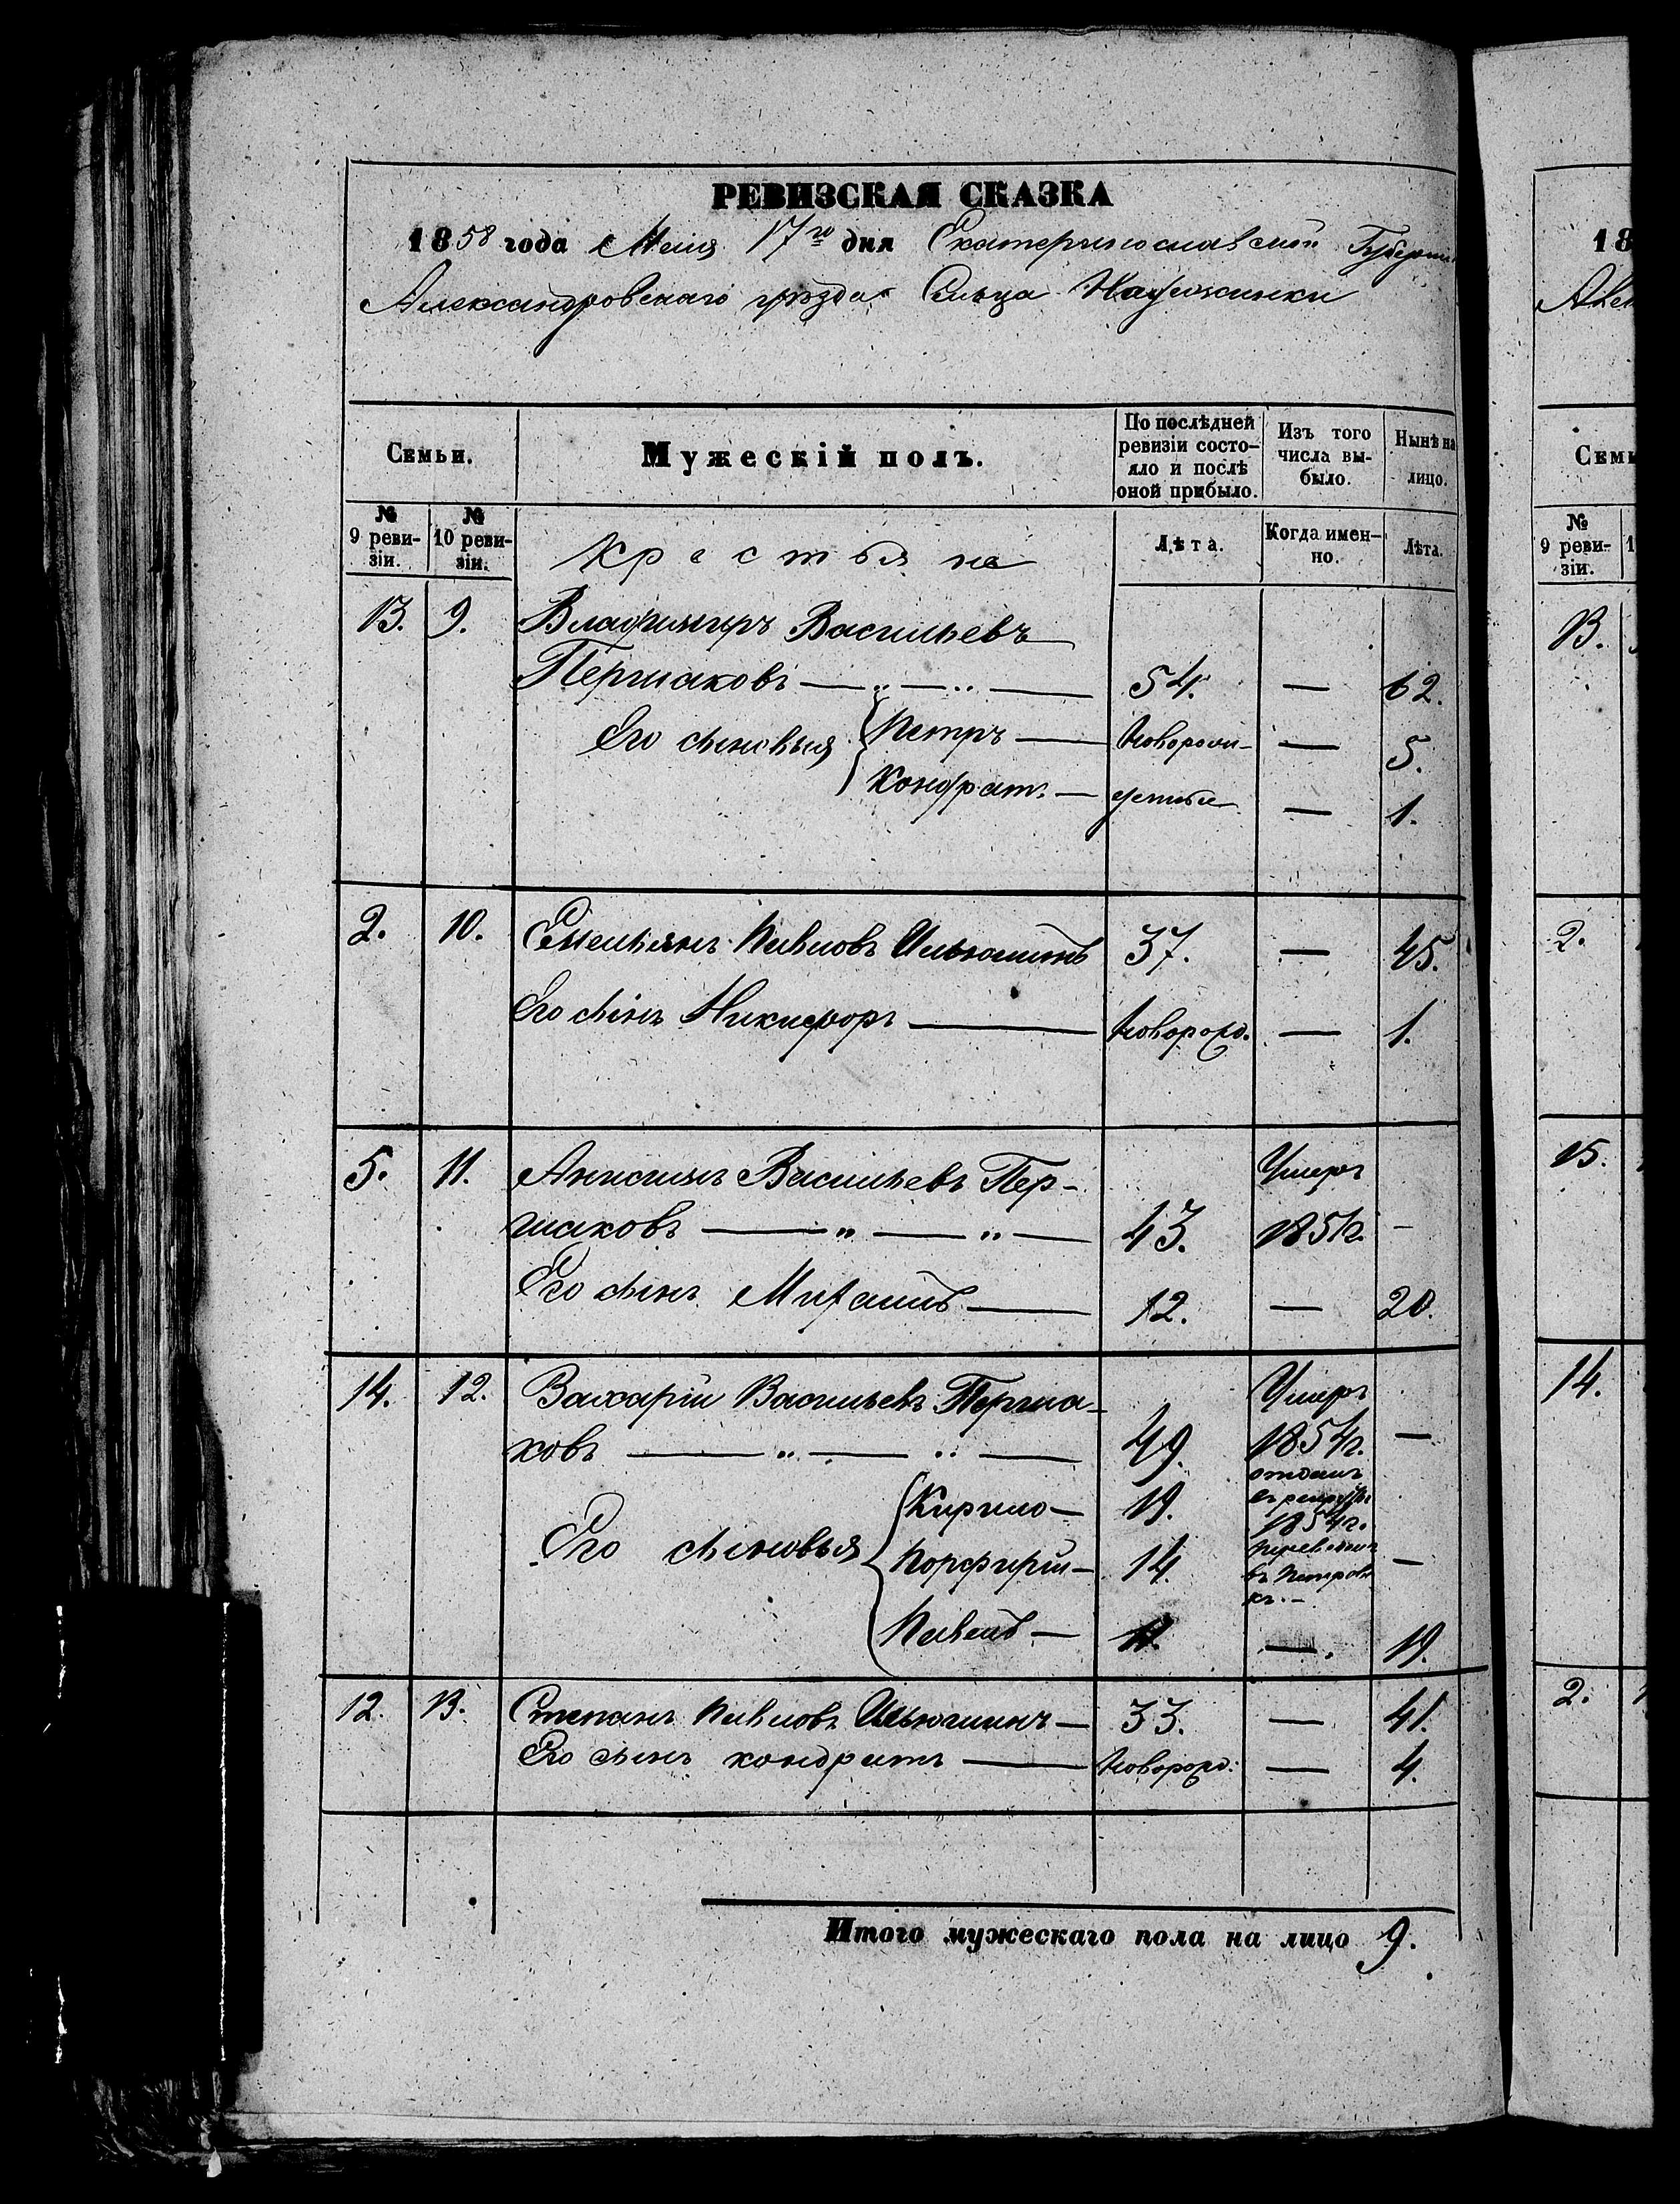 РЕВИЗСКАЯ СКАЗКА
1858 года Маія 17го дня Екатеринославской Губерніи
Александровскаго уѣзда Сельца Надеждинки
Семьи.
Мужескій полъ.
По послѣдней ревизіи состо-
яло и послѣ
оной прибыло.
Изъ того
числа вы-
было.
Нынѣ на
лицо.
№
9 реви-
зіи.
№
10 реви-
зіи.
Крестьяне
Лѣта.
Когда имен-
но.
Лѣта.
13. 9. Владимиръ Васильевъ
Першаковъ — „ — „ — 54. — 62.
Его сыновья { Петръ — Неворожд- — 5.
Кондратъ — — 1.
2. 10. Емельянъ Павловъ Ильюшинъ 37. — 45.
Его сынъ Никифоръ — новорожд. — 1.
5. 11. Анисимъ Васильевъ Пер- Умеръ
шаковъ — „ — „ — 43. 1851г. —
Его сынъ Михаилъ — 12. — 20.
14. 12. Захарій Васильевъ Перша- Умеръ
ковъ — „ — „ — 49. 1854г. —
Его сыновья { Кирило — 19. отданъ
въ рекруты
1854г.
Порфирій — 14. переведенъ
въ Петров-
кѣ. — —
Павелъ — 11. — 19.
12. 13. Степанъ Павловъ Ильюшинъ — 33. — 41.
Его сынъ Кондратъ — новорожд: — 4.
Итого мужескаго пола на лицо 9.
18
Алек
Семь
№
9 реви-
зіи.
1
13.
2.
15.
14.
2.